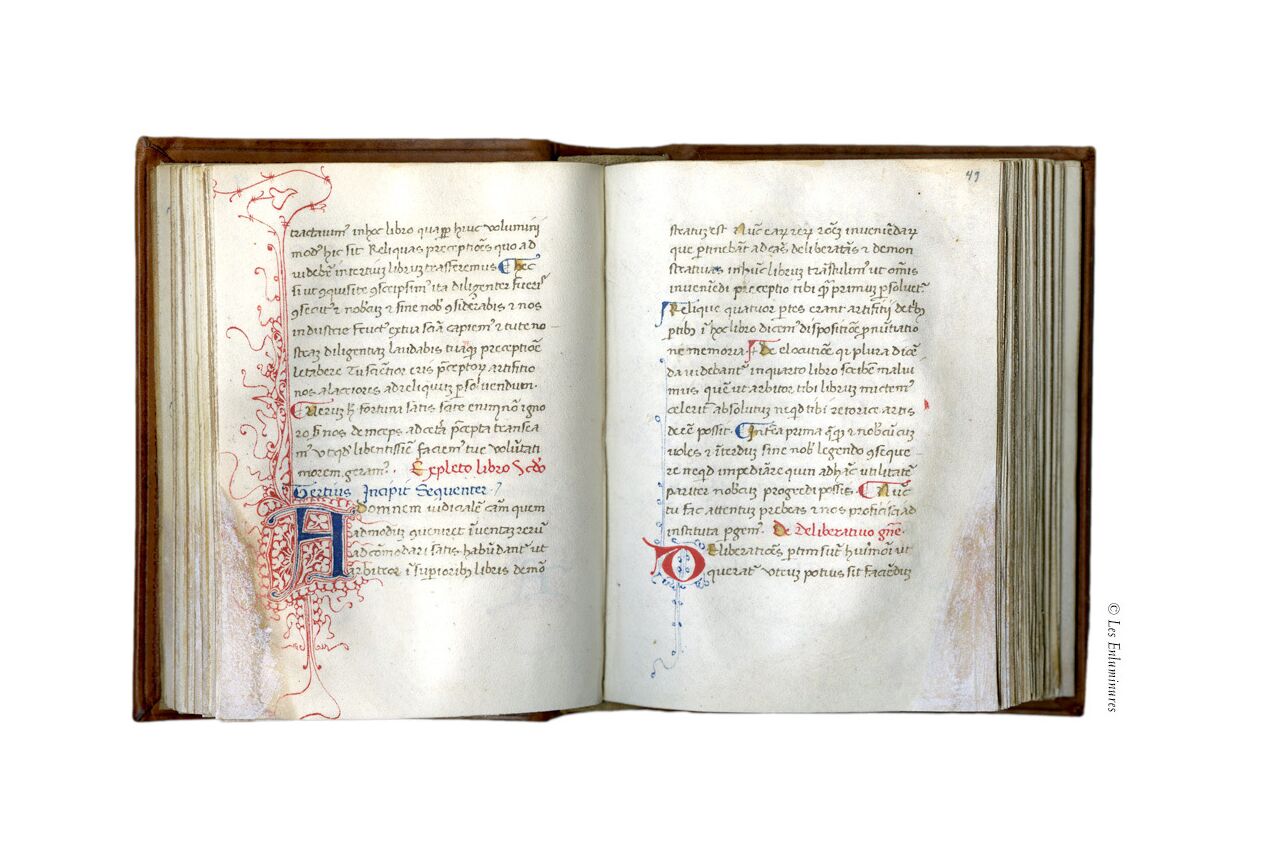 tractavim᷒ in hoc libro quaꝓp huic volumini
mod᷒ hic sit Reliquas preceptiões quo ad
videbit᷒ in tertium librum trasferemus Hec
si ut ꝯquisite ꝯscripsim᷒ ita diligenter fueris
ꝯsecut᷒ z nobcum z sine nob ꝯsiderabis z nos
industrie fruct᷒ ex tua sciã capiem᷒ z tute no
stram diligentiam laudabis tuaꝗ preceptiõe
letabere Tu scientior eris p̃ceptoꝝ artifitio
nos alacriores ad reliquum ꝑsolvendum.
Verum h fortuna satis sate enim nõ igno
ro nos deinceps ad cetã p̃cepta transea
m᷒ ut qd libentissĩe faciem᷒ tue volũtati
morem geram᷒. Expleto libro Scdo
Tertius Incipit Sequenter
Ad omnem iudicialẽ cãm quem
admodum queniret ĩventam rerũ
adcõmodari satis habũdant᷒ ut
arbitror ĩ supiorib᷒ libris demõ
43
stratum est Nũc eaꝝ reꝝ rõem inveniẽdaꝝ
que ꝑtinebãt ad cãs deliberatãs z demon
strativas in hũc librum trãstulim᷒ ut omnis
inveniẽdi preceptio tibi qm̃ primum ꝑsolveret᷒
Relique quatuor ꝑtes erant artifitii de trib᷒
ptib᷒ ĩ hoc libro dicem᷒ dispositiõe pnũtiatio
ne memoria. De elocutiõe qz plura dicẽ
da videbant᷒ in quarto libro scribẽ malui
mus quẽ ut arbitor tibi librum mictem᷒
celerit᷒ absolutum neqd tibi retorice artis
deeẽ possit. Interea prima ꝗqz z nobcum cum
voles z ĩterdum sine nob legendo ꝯseque
re neqd impediãre quin ad hãc utilitatẽ
pariter nobcum progredi possis. Nũc
tu fac attentum prebeas z nos proficisci ad
instituta pgem᷒. De deliberativo gñe.
Deliberatiões ptim sũt huĩmõi ut
querat᷒ utrum potius sit faciẽdum
© Les Enluminures